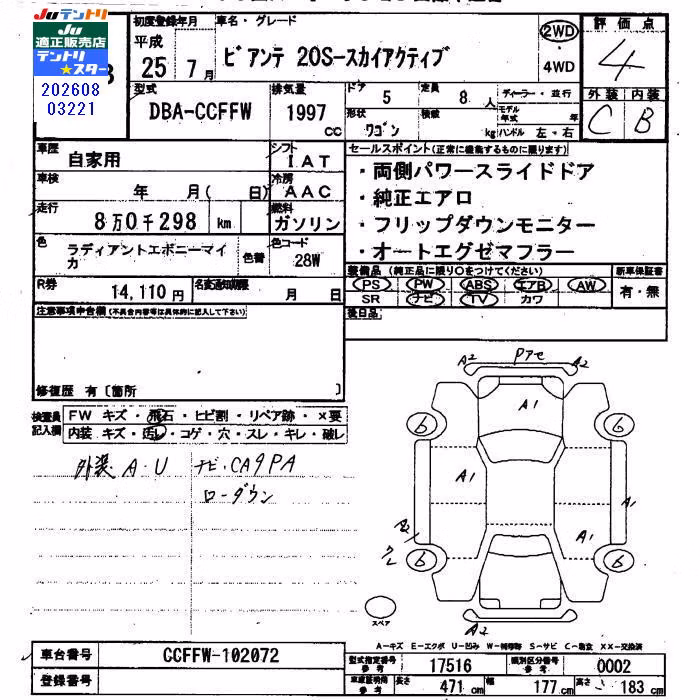 JUテントリ
JU
適正販売店
テントリ
★スター
202608
03221
初度登録年月
平成
25年 7月
車名・グレード
ビアンテ 20S-スカイアクティブ
2WD
・
4WD
評価点
4
外装 内装
C B
型式
DBA-CCFFW
排気量
1997
CC
ドア
5
定員
8 人
ディーラー・並行
形状
ワゴン
積載
kg
モデル年式 年
ハンドル 左・右
車歴
自家用
シフト
IAT
車検
年 月( 日)
冷房
AAC
走行
8万0千298 km
燃料
ガソリン
色
ラディアントエボニーマイカ
色替
色コード
28W
R券
14,110円
名変通知期限
月 日
セールスポイント(正常に機能するものに限ります)
・両側パワースライドドア
・純正エアロ
・フリップダウンモニター
・オートエグゼマフラー
装備品(純正品に限り○をつけてください)
PS PW ABS エアB AW
SR ナビ TV カワ
新車保証書
有・無
後日品
注意事項申告欄(不具合内容等は具体的に記入して下さい)
修復歴 有〔箇所 〕
検査員
記入欄
FW キズ・飛石・ヒビ割・リペア跡・×要
内装 キズ・汚レ・コゲ・穴・スレ・キレ・破レ
外装 A・U
ナビ・CA9PA
ローダウン
A2 Pアセ A2
A1
6 6
A1 A1
A2 A1
クレ
6 6
A2
スペア
A-キズ E-エクボ U-凹み W-補修跡 S-サビ C-腐食 XX-交換済
車台番号
CCFFW-102072
登録番号
型式指定番号
参考
17516
類別区分番号
参考
0002
車庫証明用
参考
長さ 471cm 幅 177cm 高さ 183cm